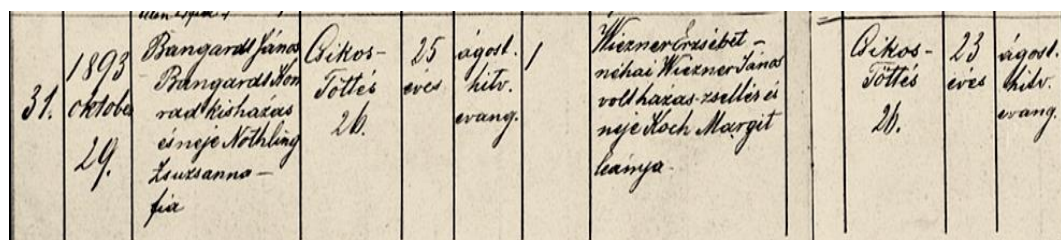 31.
1893
oktober
29.
Bangardt János
Bangardt Kon
rad kisházas
és neje Nöthling
Zsuzsanna –
fia
Csikos-
Töttés
26.
25
éves
ágost.
hitv.
evang.
1
Wiezner Erzsébet –
néhai Wiezner János
volt házas-zsellér és
neje Koch Margit
leánya.
Csikos-
Töttés
26.
23
éves
ágost.
hitv.
evang.